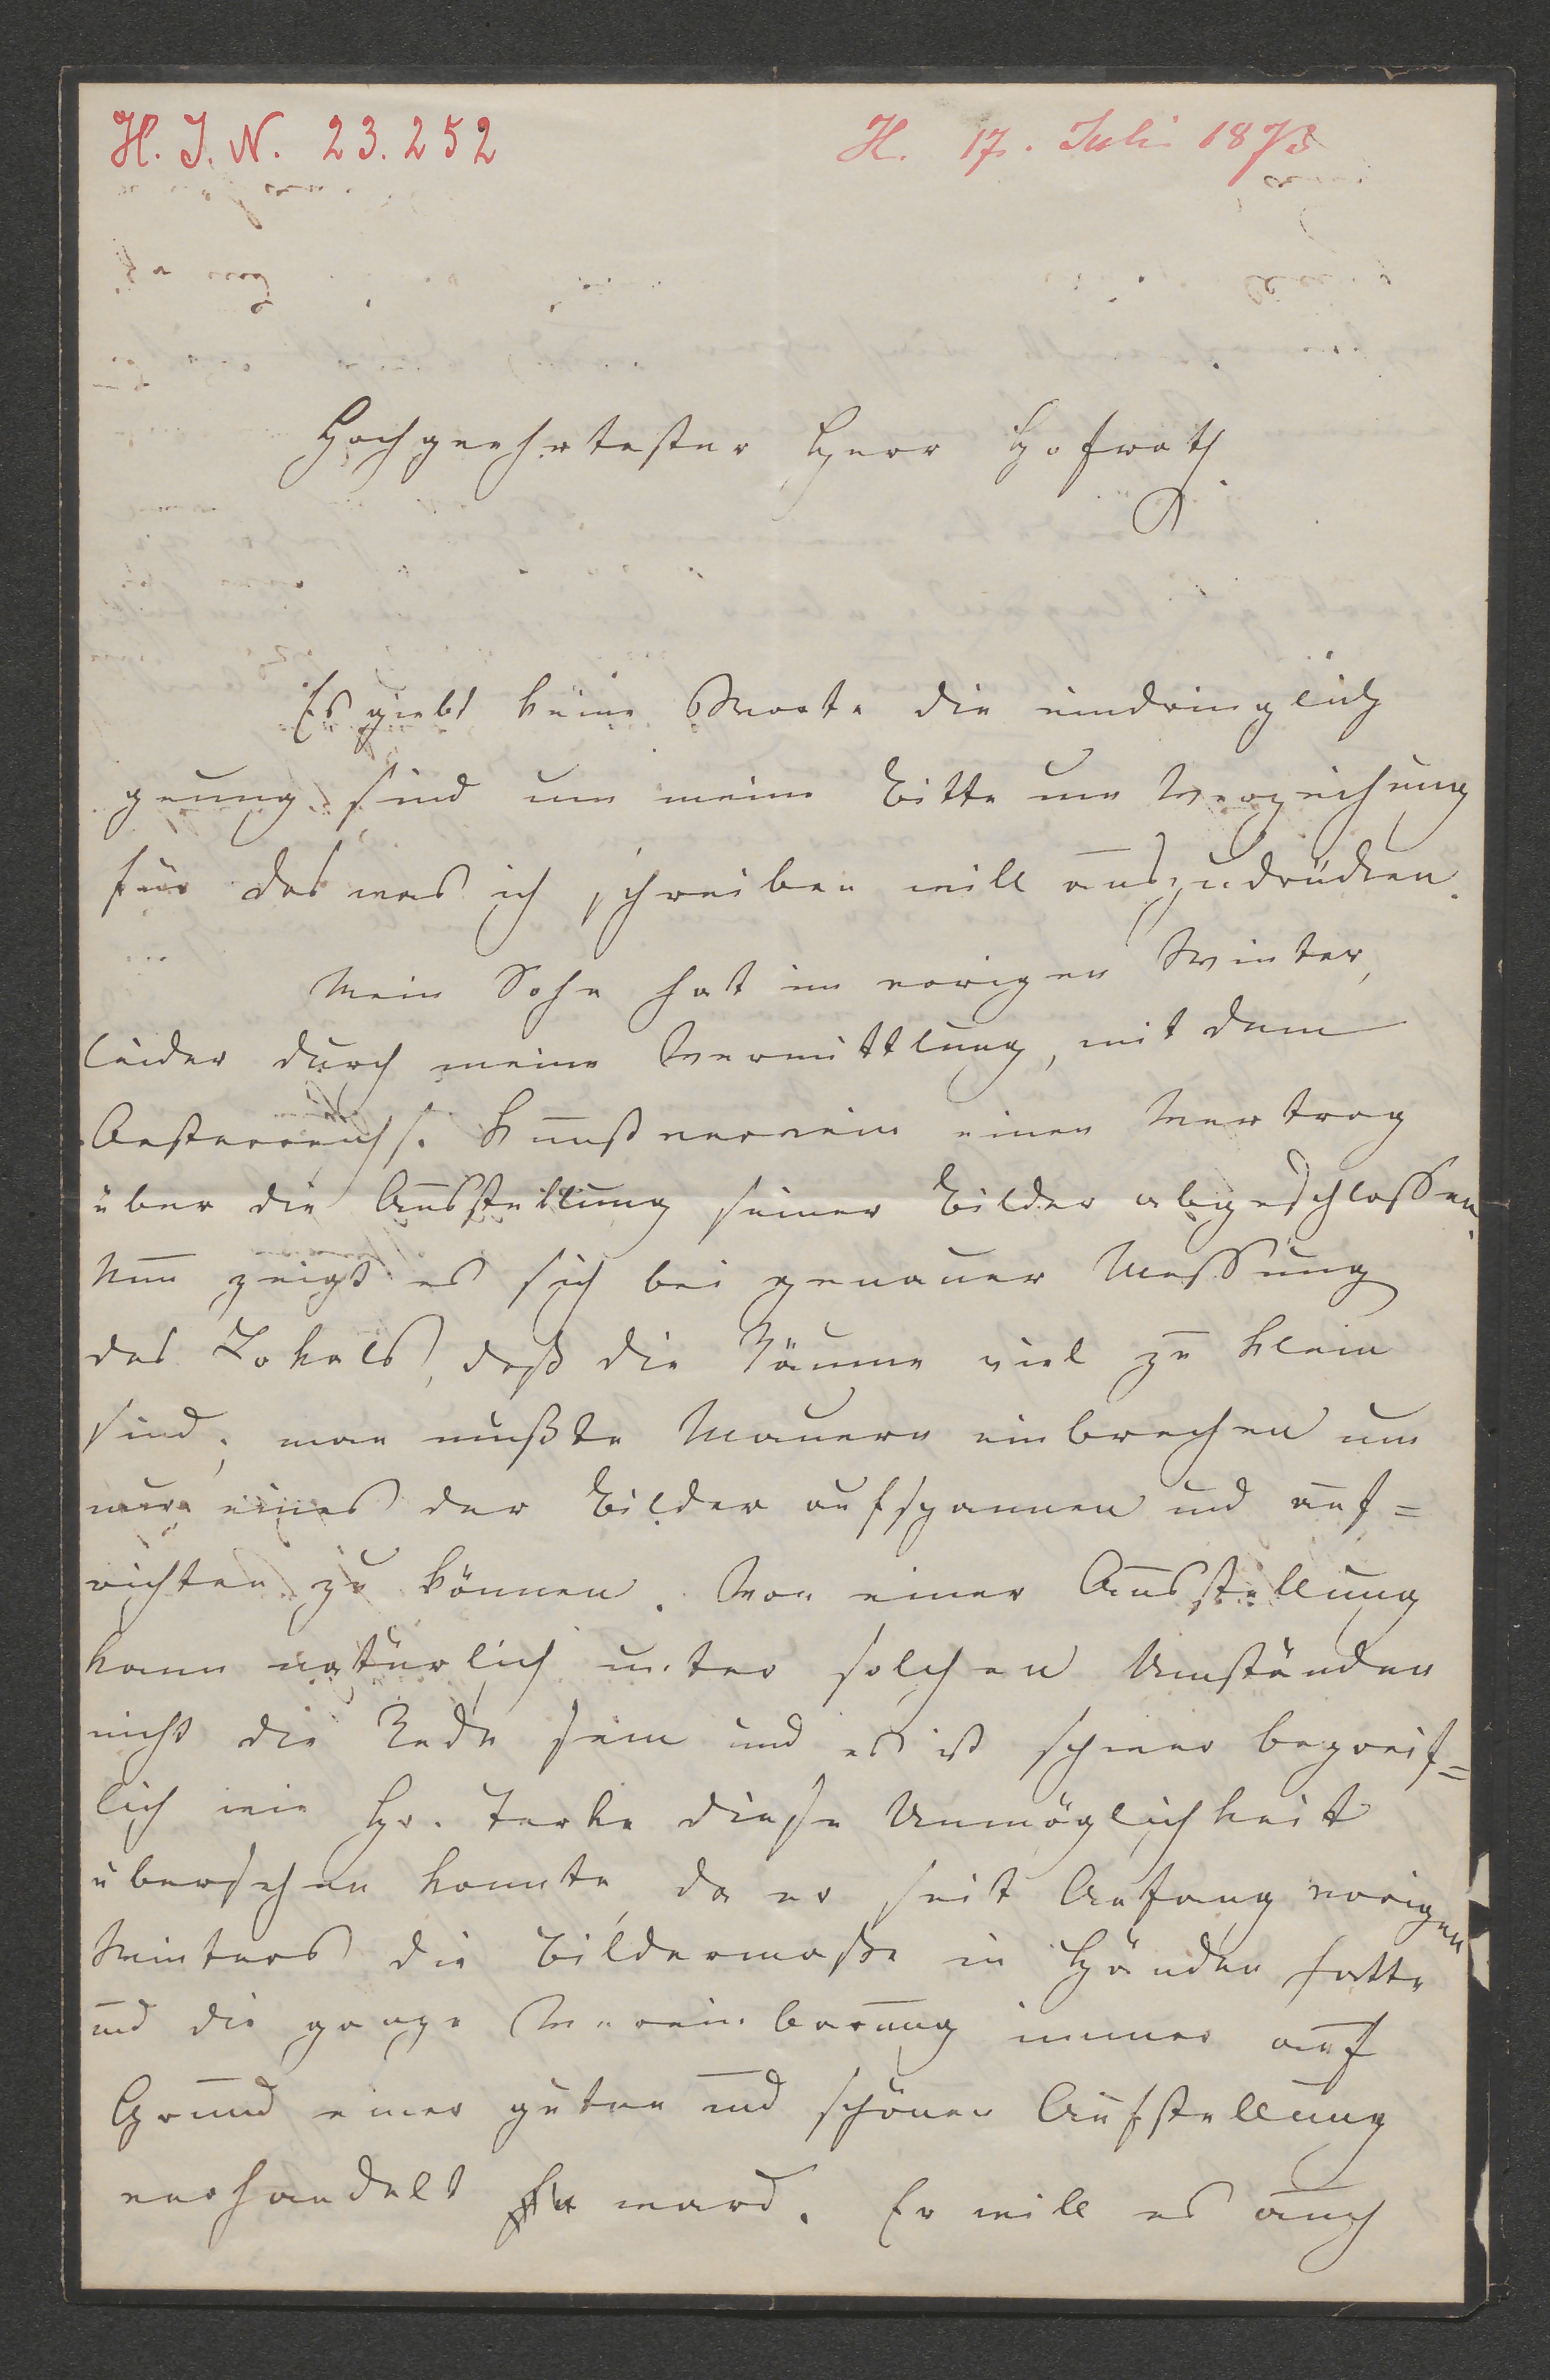 H. J. N. 23.252
H. 17. Juli 1873
Hochgeehrtester Herr Hofrath
Es giebt keine Worte die eindringlich
genung sind um meine Bitte um Verzeihung
für das was ich schreiben will auszudrücken.
Mein Sohn hat im vorigen Winter,
leider durch meine Vermittlung, mit dem
Oesterreichs. Kunstverein einen Vertrag
über die Ausstellung seiner Bilder abgeschlossen.
Nun zeigt es sich bei genauer Messung
des Lokals, daß die Räume viel zu klein
sind; man mußte Mauern einbrechen um
nur eines der Bilder aufspannen und auf=
richten zu können. Von einer Ausstellung
kann natürlich unter solchen Umständen
nicht die Rede sein und es ist schwer begreif=
lich wie Hr. Terke diese Unmöglichkeit
übersehen konnte, da er seit Anfang vorigen
Winters die Bildermaße in Händen hatte
und die ganze Vereinbarung immer auf
Grund einer guten und schönen Aufstellung
verhandelt ward. Er will es auch